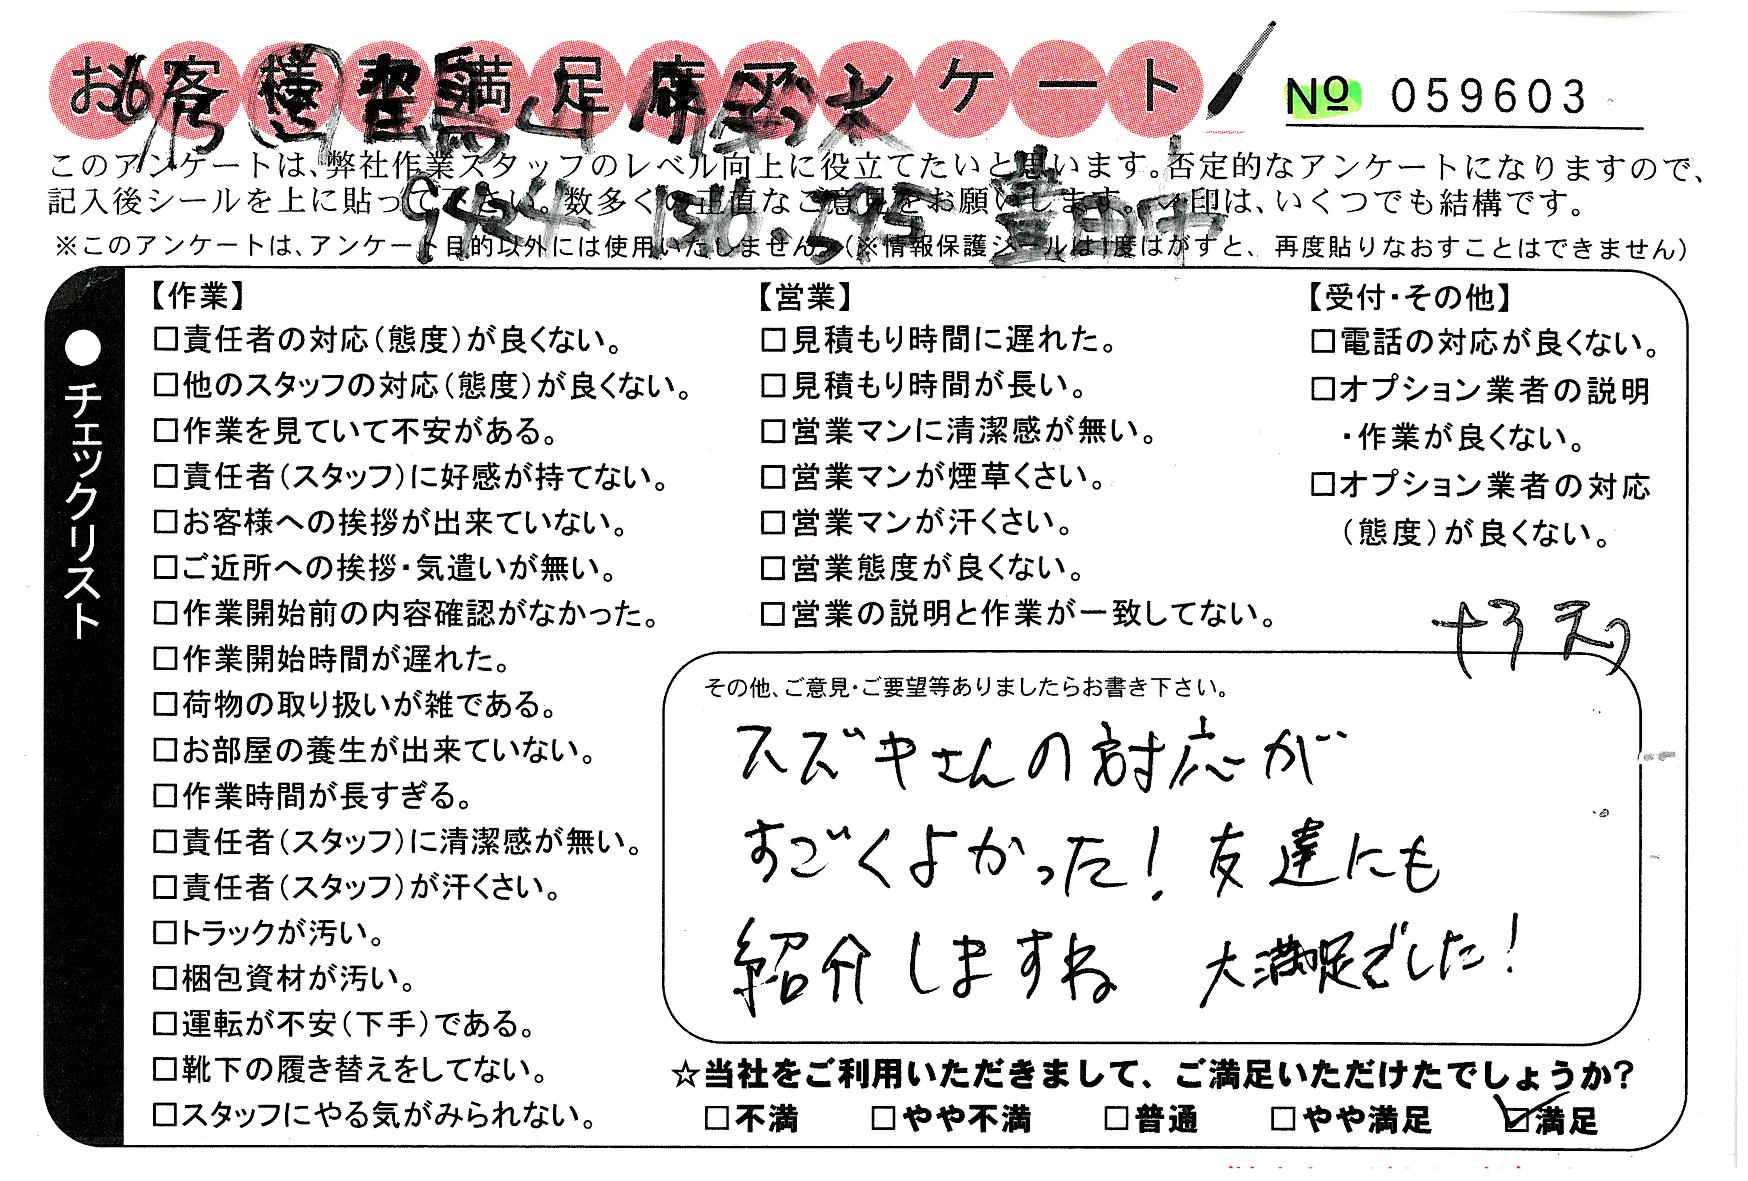 お客様満足度アンケート
№ 059603
このアンケートは、弊社作業スタッフのレベル向上に役立てたいと思います。否定的なアンケートになりますので、
記入後シールを上に貼ってください。数多くの正直なご意見をお願いします。✓印は、いくつでも結構です。
※このアンケートは、アンケート目的以外には使用いたしません。(※情報保護シールは1度はがすと、再度貼りなおすことはできません)
●チェックリスト
【作業】
□責任者の対応(態度)が良くない。
□他のスタッフの対応(態度)が良くない。
□作業を見ていて不安がある。
□責任者(スタッフ)に好感が持てない。
□お客様への挨拶が出来ていない。
□ご近所への挨拶・気遣いが無い。
□作業開始前の内容確認がなかった。
□作業開始時間が遅れた。
□荷物の取り扱いが雑である。
□お部屋の養生が出来ていない。
□作業時間が長すぎる。
□責任者(スタッフ)に清潔感が無い。
□責任者(スタッフ)が汗くさい。
□トラックが汚い。
□梱包資材が汚い。
□運転が不安(下手)である。
□靴下の履き替えをしてない。
□スタッフにやる気がみられない。
【営業】
□見積もり時間に遅れた。
□見積もり時間が長い。
□営業マンに清潔感が無い。
□営業マンが煙草くさい。
□営業マンが汗くさい。
□営業態度が良くない。
□営業の説明と作業が一致してない。
【受付・その他】
□電話の対応が良くない。
□オプション業者の説明
・作業が良くない。
□オプション業者の対応
(態度)が良くない。
その他、ご意見・ご要望等ありましたらお書き下さい。
スズキさんの対応が
すごくよかった！友達にも
紹介しますね 大満足でした！
☆当社をご利用いただきまして、ご満足いただけたでしょうか?
□不満 □やや不満 □普通 □やや満足 ☑満足